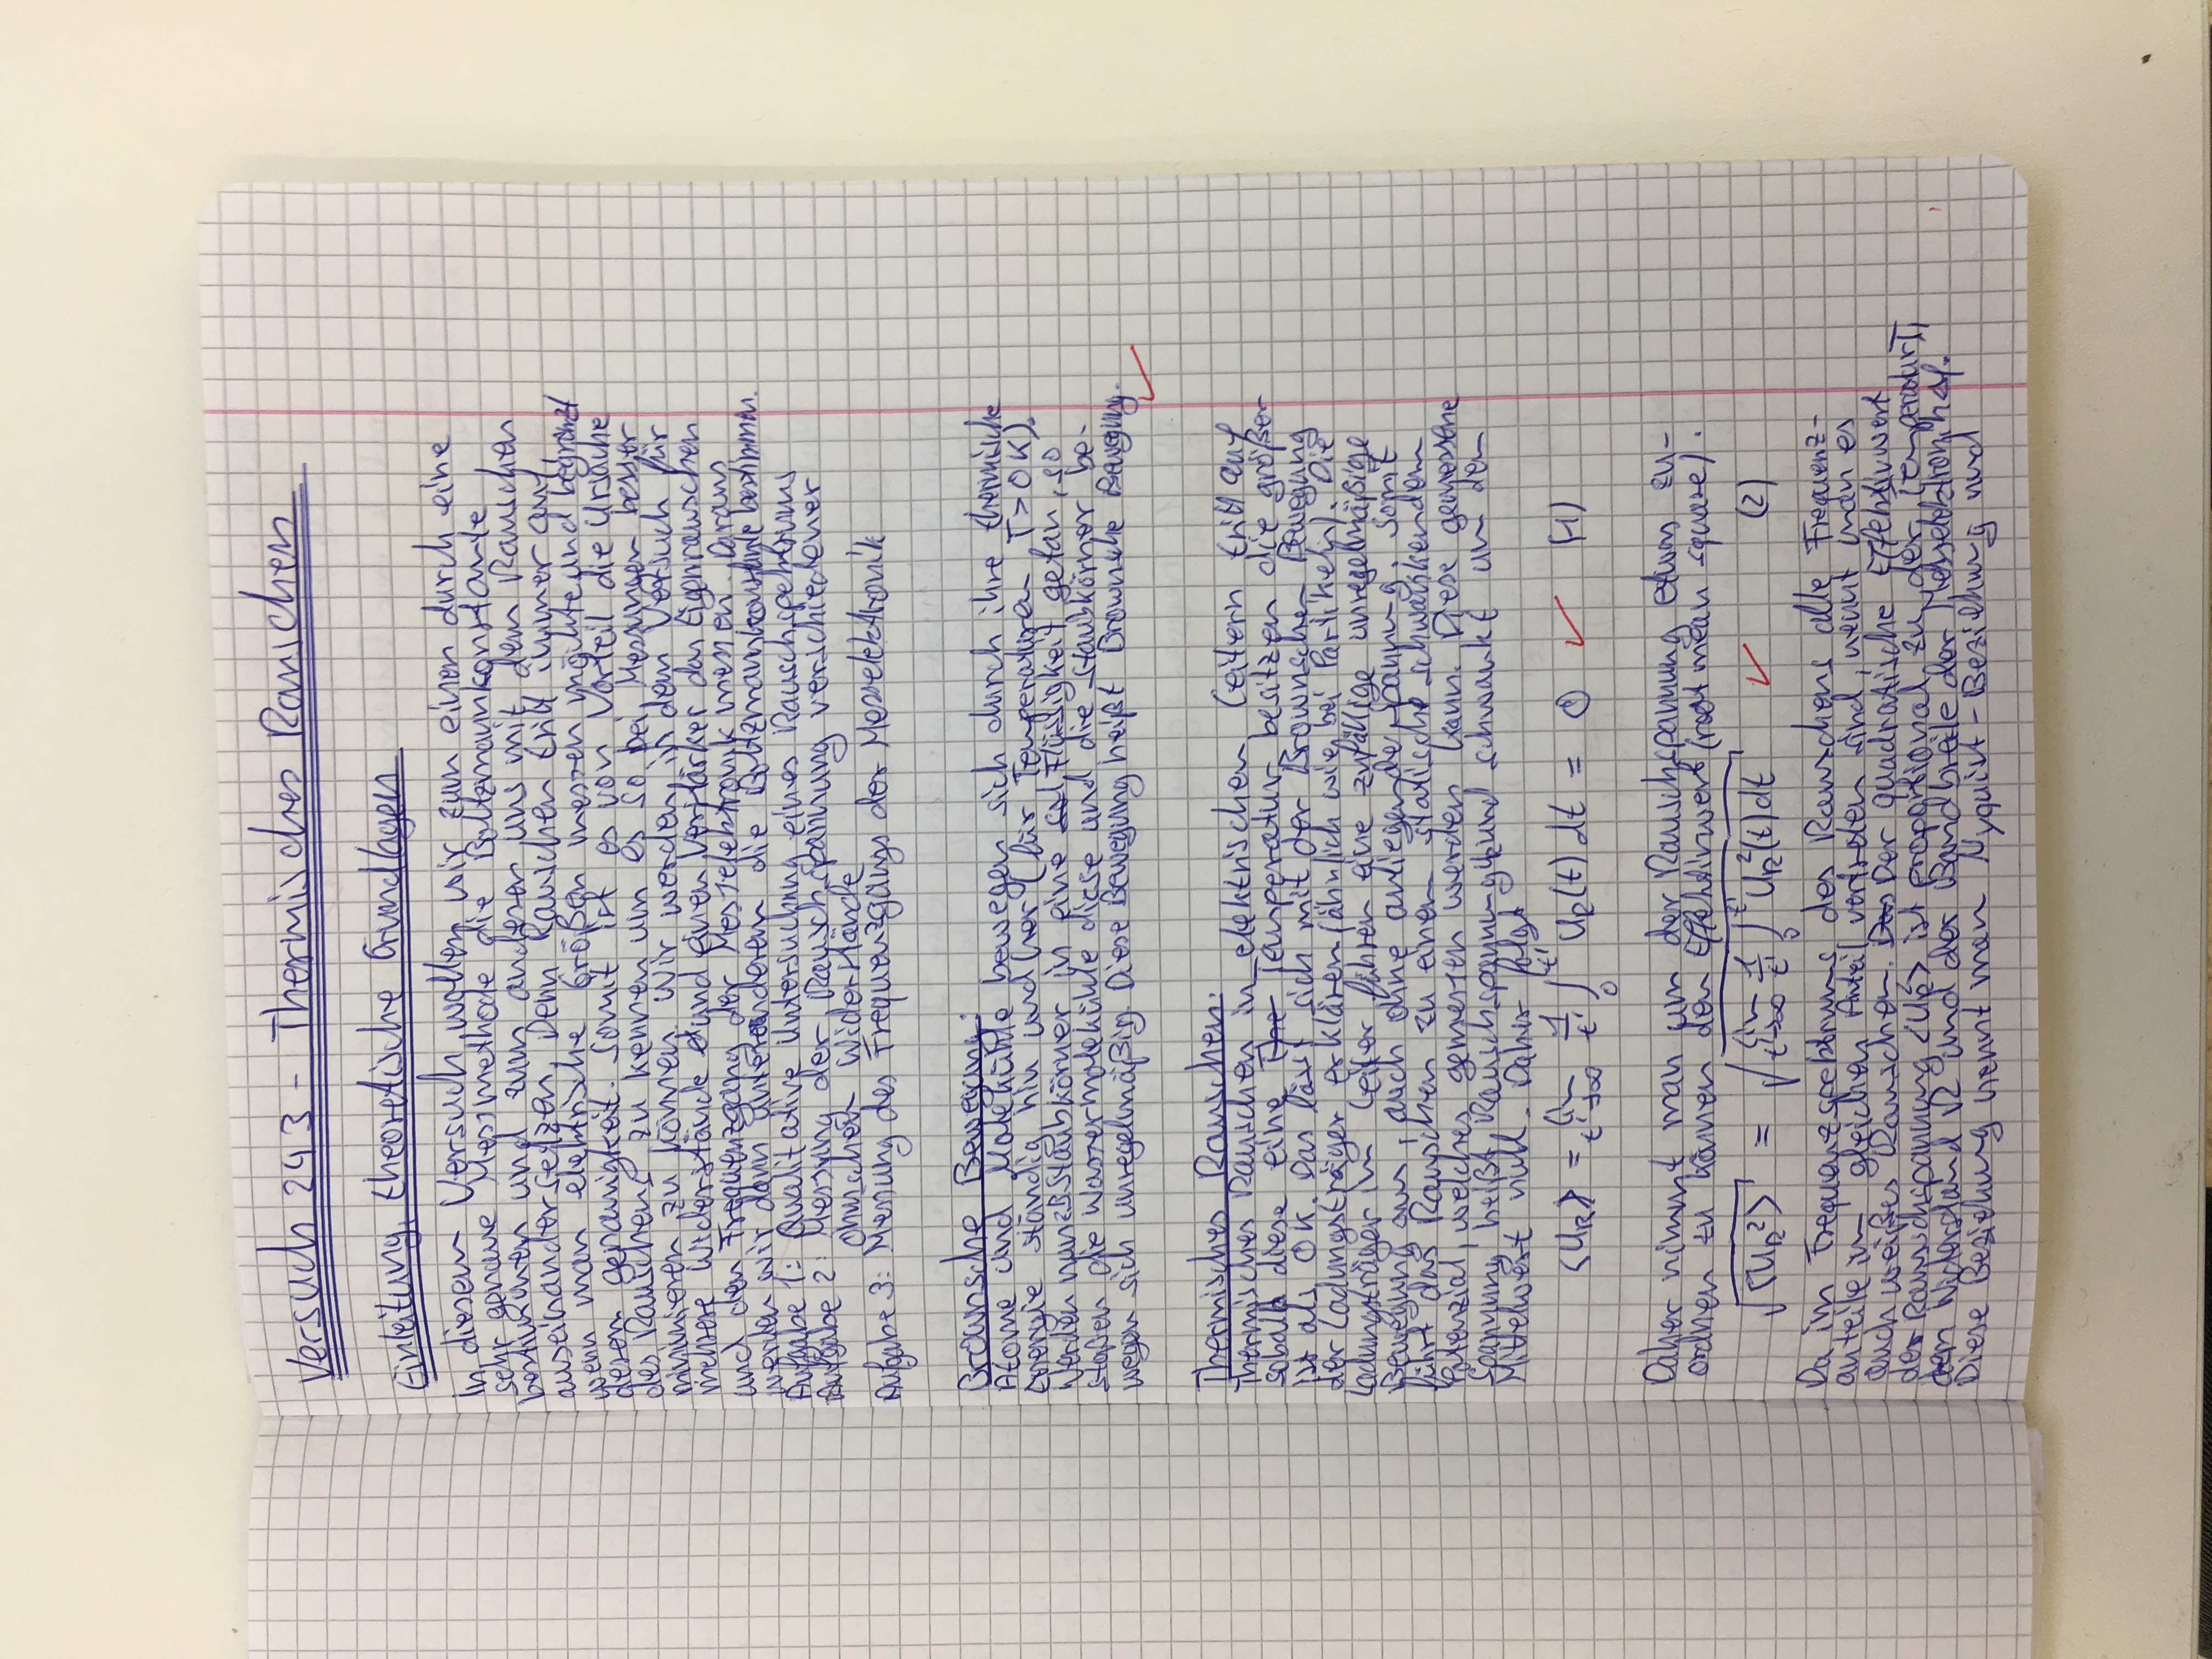 Versuch 243 - Thermisches Rauschen
Einleitung, theoretische Grundlagen
In diesem Versuch wollen wir zum einen durch eine
sehr genaue Messmethode die Boltzmannkonstante
bestimmen und zum anderen uns mit dem Rauschen
auseinandersetzen. Denn Rauschen tritt immer auf,
wenn man elektrische Größen messen möchte und begrenzt
deren genauigkeit. Somit ist es von Vorteil die Ursache
des Rauschens zu kennen um es so bei Messungen besser
minimieren zu können. Wir werden in dem Versuch für
mehrere Widerstände und einen Verstärker das Eigenrauschen
und den Frequenzgang der Messelektronik messen. Daraus
werden wir dann unteranderem die Boltzmannkonstante bestimmen.
Aufgabe 1: Qualitative Untersuchung eines Rauschspektrums
Aufgabe 2: Messung der Rauschspannung verschiedener
ohmschen Widerstände
Aufgabe 3: Messung des Frequenzgangs der Messelektronik
Brownsche Bewegung:
Atome und Molekühle bewegen sich durch ihre thermische
Energie ständig hin und her (für Temperaturen T > 0 K).
Werden nun z.B. Staubkörner in eine Flüssigkeit getan, so
stoßen die Wassermoleküle diese und die Staubkörner be-
wegen sich unregelmäßig. Diese Bewegung heißt Brownsche Bewegung.
Thermisches Rauschen:
Thermisches Rauschen in elektrischen Leitern tritt auf
sobald diese eine Temperatur besitzen die größer
ist als 0 K. Das lässt sich mit der Brownschen Bewegung
der Ladungsträger erklären (ähnlich wie bei Partikeln). Die
Ladungsträger im Leiter führen eine zufällige unregelmäßige
Bewegung aus, auch ohne anliegende Spannung. Somit
führt das Rauschen zu einem statische schwankendem
Potenzial, welches gemessen werden kann. Diese gemessene
Spannung heißt Rauschspannung und schwankt um den
Mittelwert null. Daher folgt
⟨U_R⟩ = lim_{t'→∞} 1/t' ∫_0^{t'} U_R(t) dt = 0 ✓ (1)
Daher nimmt man um der Rauschspannung etwas zu-
ordnen zu können den Effektivwert (root mean square).
√⟨U_R²⟩ = √(lim_{t'→∞} 1/t' ∫_0^{t'} U_R²(t) dt) ✓ (2)
Da im Frequenzspektrums des Rauschens alle Frequenz-
anteile im gleichen Anteil vertreten sind, nennt man es
auch weißes Rauschen. Der quadratische Effektivwert
der Rauschspannung ⟨U_R²⟩ ist proportional zu der Temperatur T,
dem Widerstand R und der Bandbreite der Messelektronik Δf.
Diese Beziehung nennt man Nyquist-Beziehung und